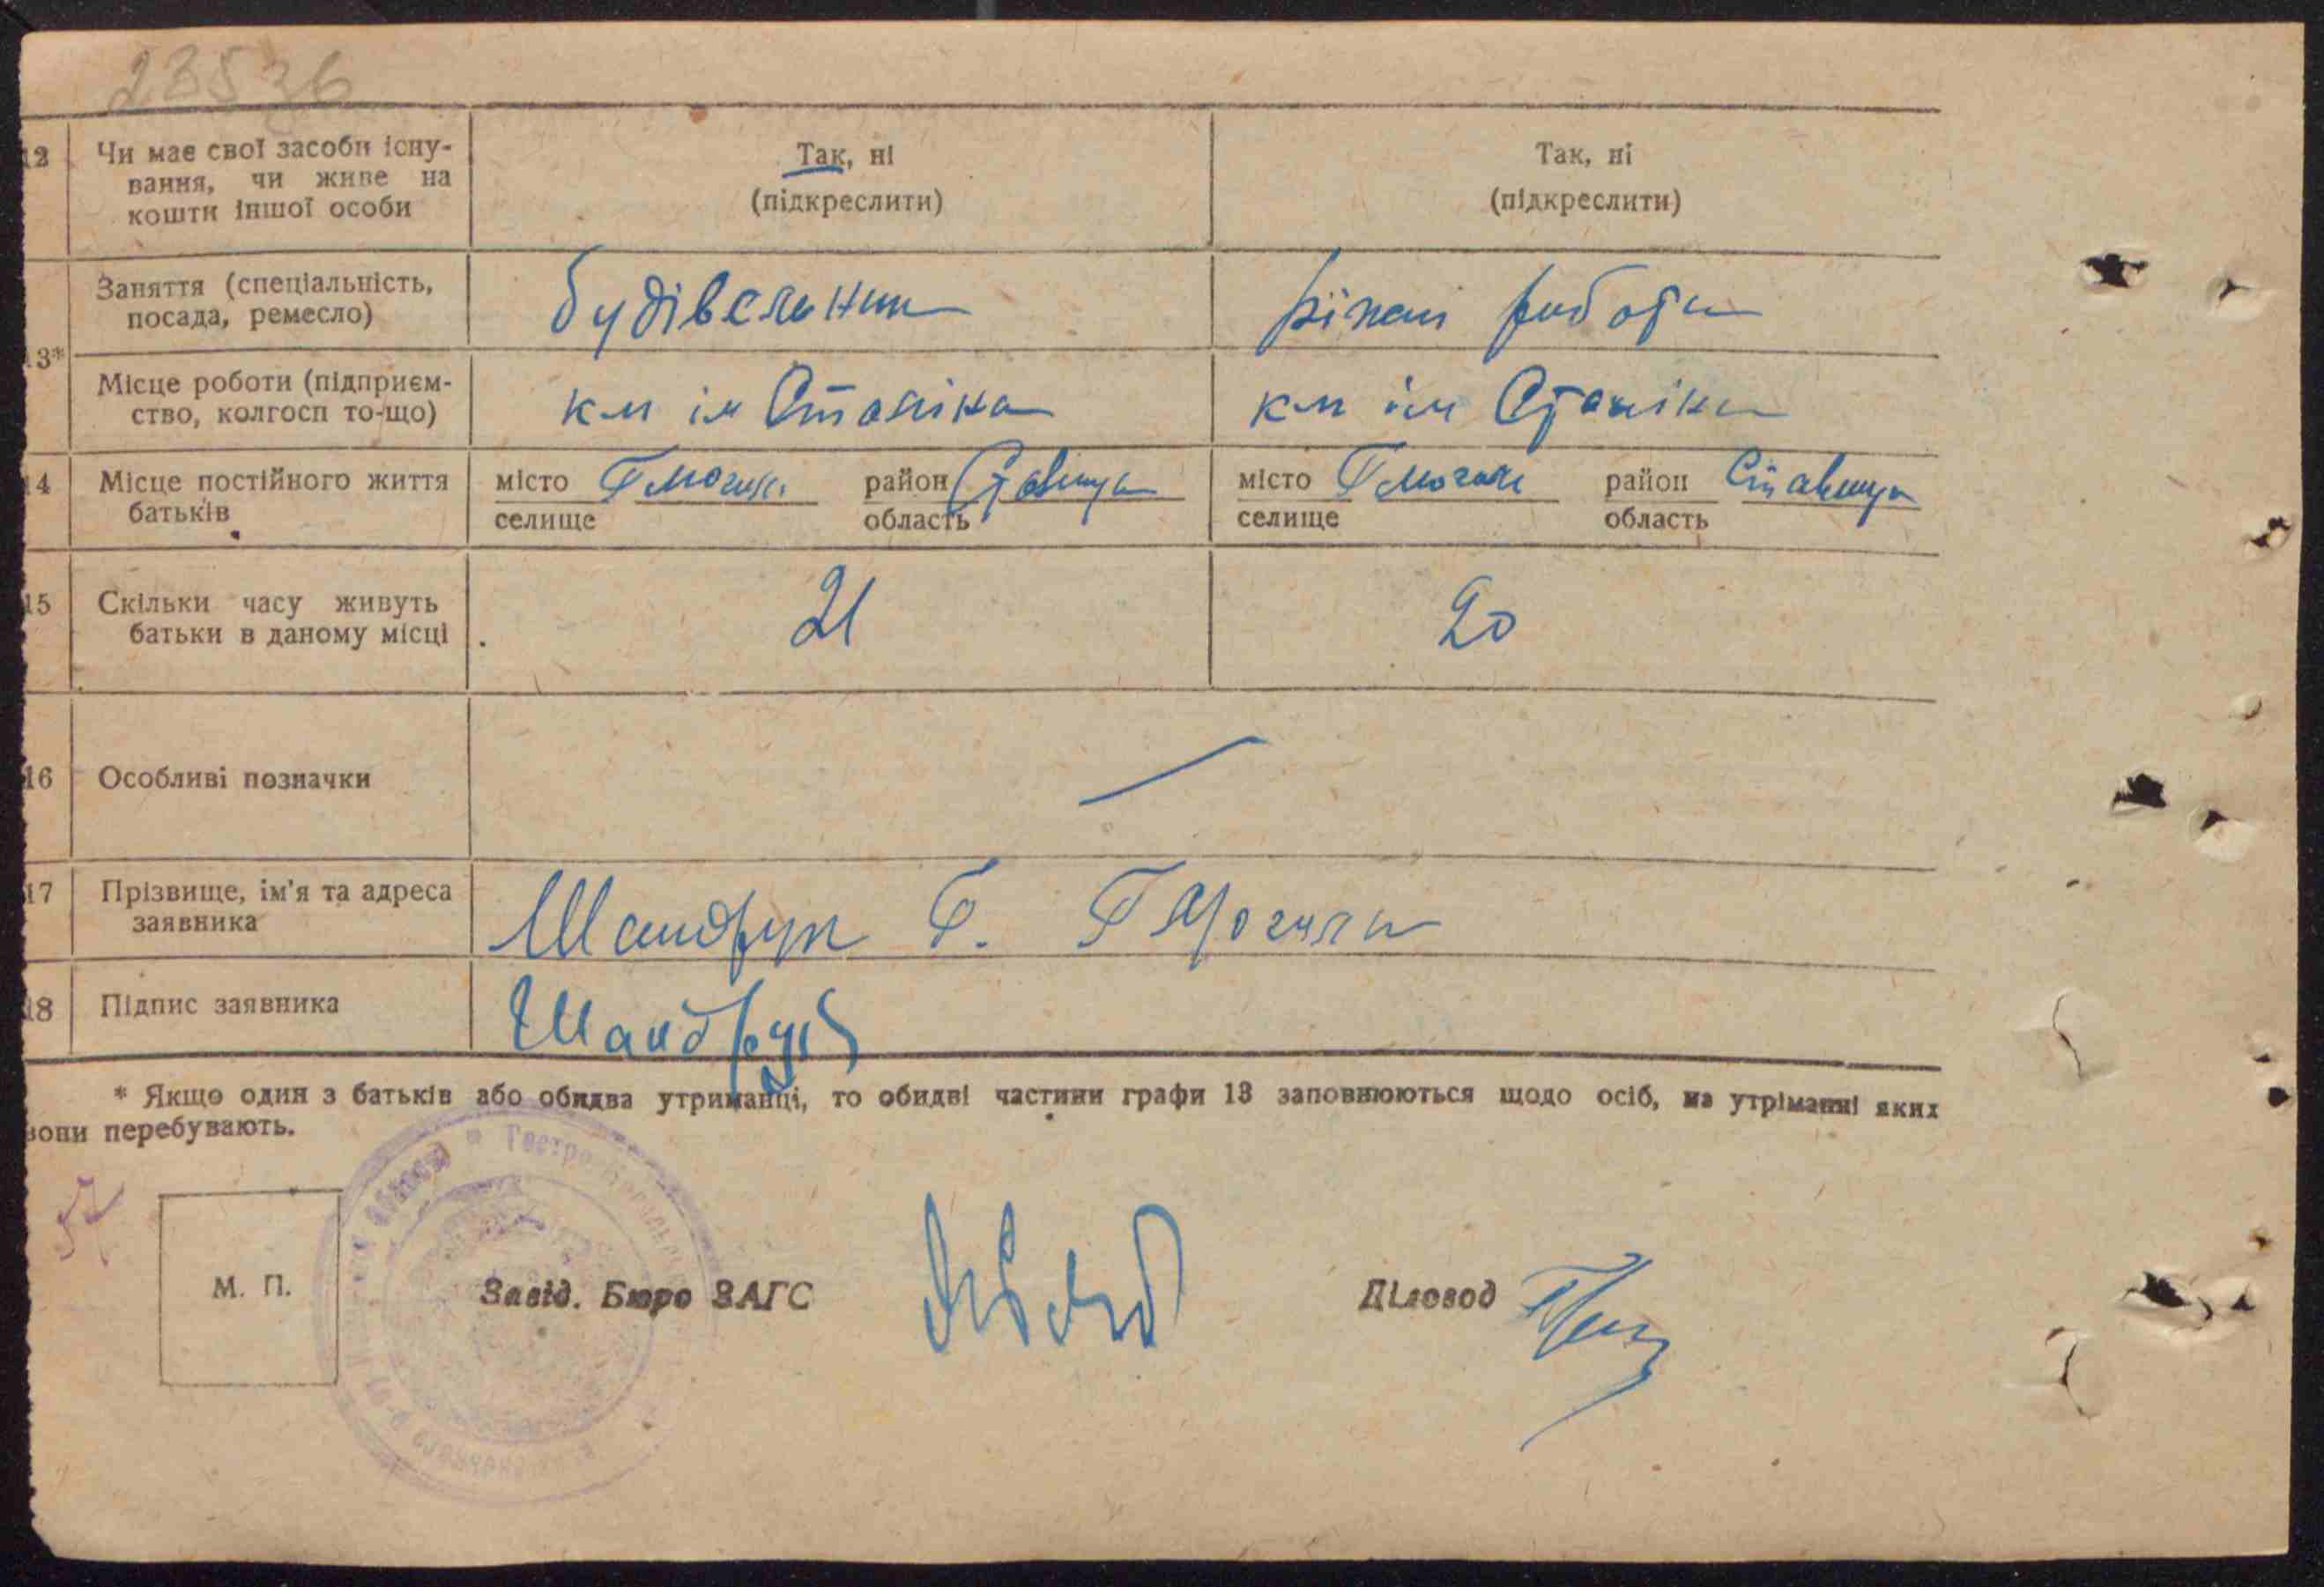 23536
12 Чи має свої засоби існу- Так, ні Так, ні
вання, чи живе на
кошти іншої особи (підкреслити) (підкреслити)
Заняття (спеціальність, будівельник різні роботи
посада, ремесло)
13*
Місце роботи (підприєм- к-п ім Сталіна к-п ім Сталіна
ство, колгосп то-що)
14 Місце постійного життя місто район місто район
батьків селище область селище область
15 Скільки часу живуть 21 20
батьки в даному місці
16 Особливі позначки —
17 Прізвище, ім'я та адреса Шандрук Г.
заявника
18 Підпис заявника Шандрук
* Якщо один з батьків або обидва утриманці, то обидві частини графи 13 заповнюються щодо осіб, на утріманні яких
вони перебувають.
57
М. П. Завід. Бюро ЗАГС Діловод